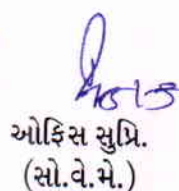 ઓફિસ સુપ્રિ.
(સો.વે.મે.)